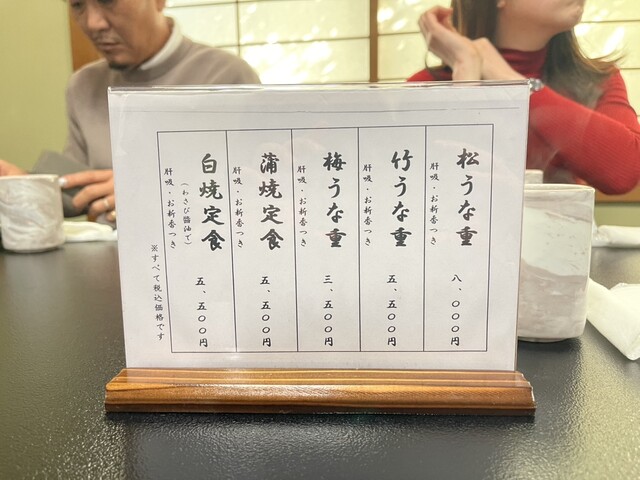 松うな重 八、〇〇〇円
肝吸・お新香つき
竹うな重 五、五〇〇円
肝吸・お新香つき
梅うな重 三、五〇〇円
肝吸・お新香つき
蒲焼定食 五、五〇〇円
肝吸・お新香つき
白焼定食 五、五〇〇円
(わさび醤油で)
肝吸・お新香つき
※すべて税込価格です